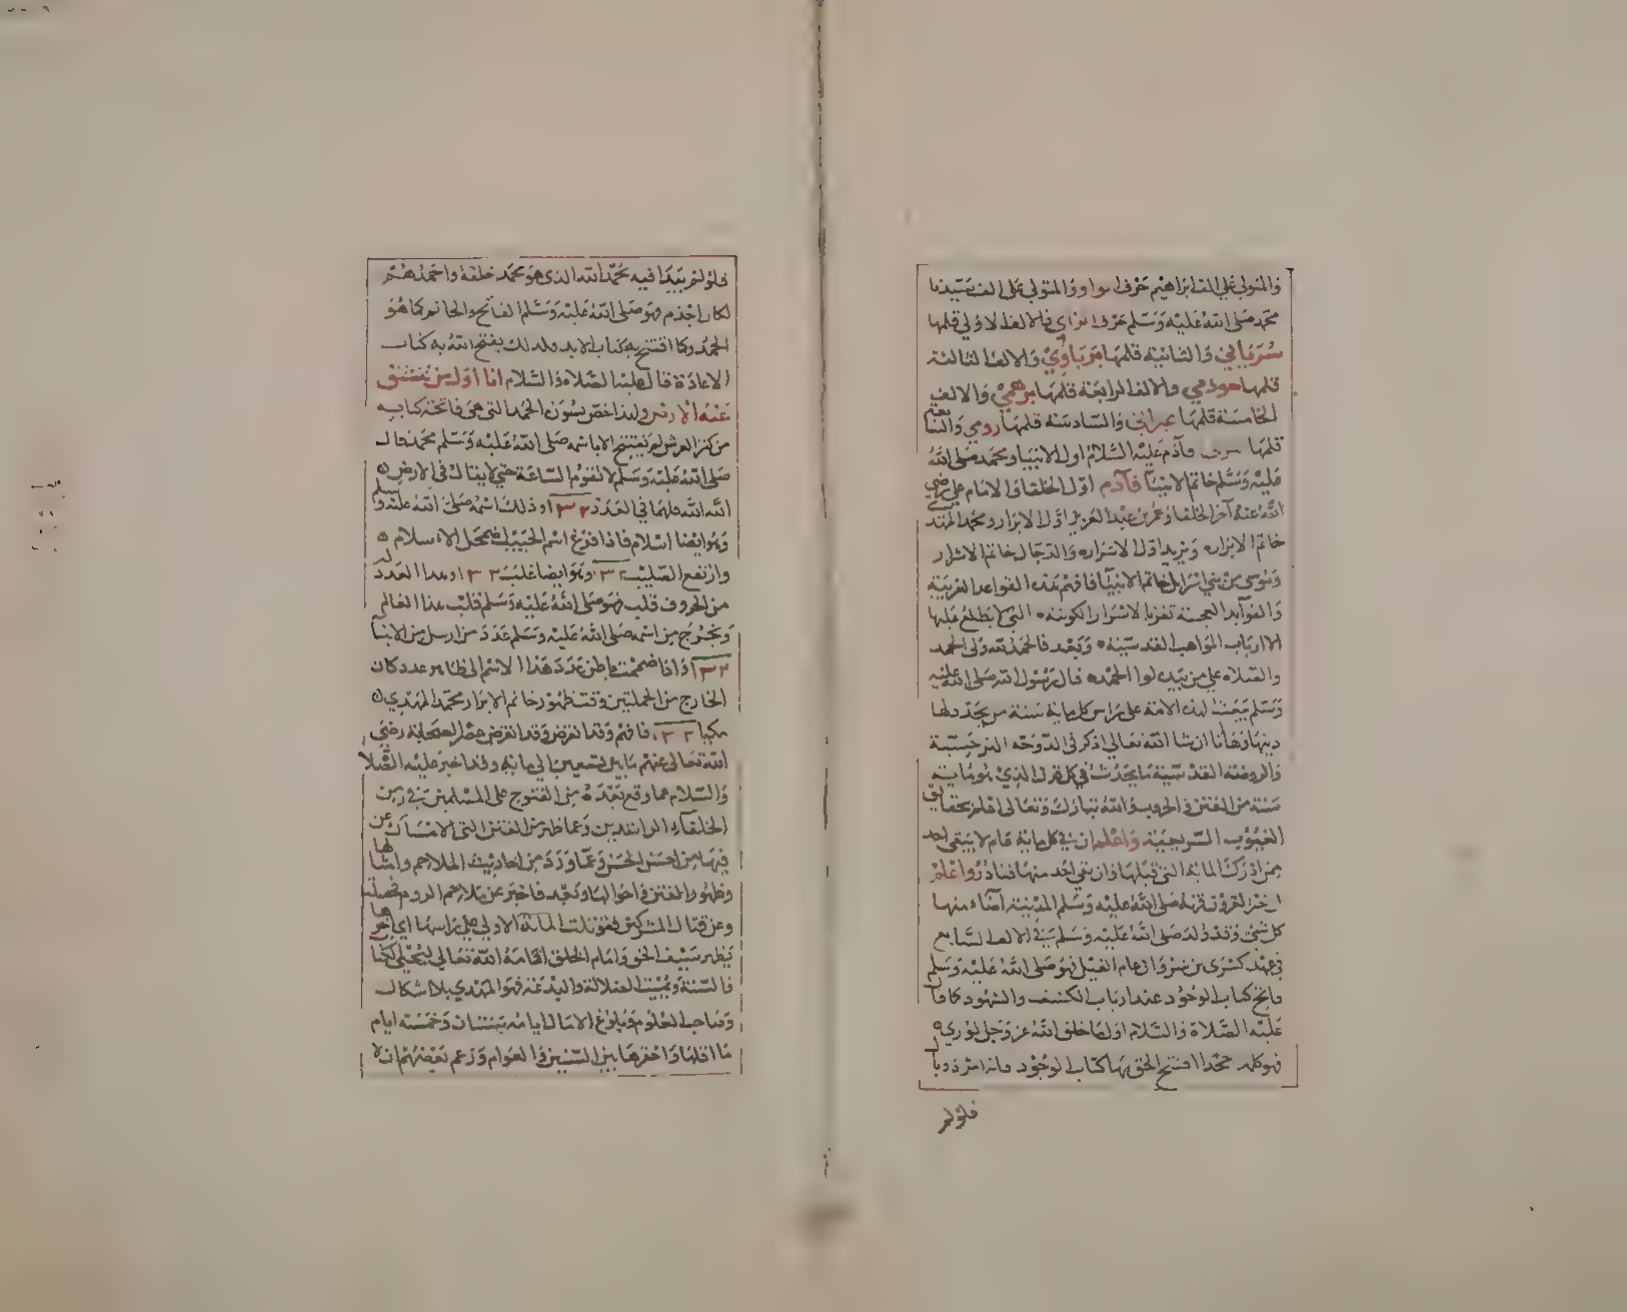 والمتولي على الف ابراهيم حرف الواو والمتولي على الف سيدنا
محمد صلى الله عليه وسلم حرف الزاي فالالف الاولي قلمها
سرياني والثانية قلمها والالف الثالثة
قلمها والالف الرابعة قلمها والالف
الخامسة قلمها عبراني والسادسة قلمها رومي والسابعة
قلمها فآدم عليه السلام اول الانبيا ومحمد صلى الله
عليه وسلم خاتم الانبيآ فآدم اول الخلفا والامام علي رضي
الله عنه آخر الخلفا وعمر بن عبد العزيز اول الابرار ومحمد المهدي
خاتم الابرار ويزيد اول الاشرار والدجال خاتم الاشرار
وموسى من بني اسرايل خاتم الانبيآ فافهم هذه القواعد الغريبة
والفوآيد العجيبة تفز بالاسرار الكونية التي لا يطلع عليها
الا ارباب المواهب القدسية وبعد فالحمد لله ولي الحمد
والصلاه علي من بيده لوا الحمد قال رسول الله صلى الله عليه
وسلم يبعث لهذه الامة على راس كل ماية سنة من يجدد لها
دينها وها انا ان شا الله تعالى اذكر في الدوحه
والروضة القدسية ما يحدث في كل قرن الذي هو ماية
سنة من الفتن والحروب والله تبارك وتعالى اعلم بحقايق
الغيوب واعلم ان في كل ماية عام لا يبقى احد
ممن ادرك الماية التي قبلها وان بقي احد منها فنادر واعلم
ان خير القرون قرنه صلى الله عليه وسلم المدينة اضاء منها
كل شي وقد ولد صلى الله عليه وسلم في الالف السابع
في عهد كسرى عام الفيل فهو صلى الله عليه وسلم
فاتح كتاب الوجود عند ارباب الكشف والشهود كما قال
عليه الصلاة والسلام اول ما خلق الله عز وجل نوري
فهو كلمة محمد افتتح الحق بها كتاب الوجود
فلو لم
فلو لم يبدا فيه بحمد الله الذي هو محمد خلقه واحمدهم
لكان اجذم فهو صلى الله عليه وسلم الفاتح والخاتم كما هو
الحمد وكما افتتح به كتاب الابد فكذلك يفتتح الله به كتاب
الاعادة قال عليه الصلاه والسلام انا اول من تنشق
عنه الارض ولهذا خص بسورة الحمد التي هي فاتحة كتابه
من كنز العرش لم يفتتح الا باسمه صلى الله عليه وسلم محمد قال
صلى الله عليه وسلم لا تقوم الساعة حتي لا يقال في الارض
الله الله فلهما في العدد ١٣٢ وذلك اسمه صلى الله عليه وسلم
وهو ايضا اسلام فاذا فرغ اسم الحبيب اضمحل الاسلام
وارتفع الصليب وهو ايضا غلب وهذا العدد
من الحروف قلب فهو صلى الله عليه وسلم قلب هذا العالم
ويخرج من اسمه صلى الله عليه وسلم عدد من ارسل من الانبيآ
واذا ضممت باطن عدد هذا الاسم الى ظاهر عدد كان
الخارج من الجملتين وقت ظهور خاتم الابرار محمد المهدي
فافهم وقد انقرض عصر الصحابة رضي
الله تعالى عنهم ما بين تسعين الى ماية وقد اخبر عليه الصلاة
والسلام عما وقع بعده من الفتوح على المسلمين في زمن
الخلفاء الراشدين وعما ظهر من الفتن التي الامساك عن
فيها من احسن الحسن وعما ورد من احاديث الملاحم وامثالها
وظهور الفتن في احوالها
وعن قتال المشركين الماية الاولى علي راسها
يظهر بسيف الحق وامام الخلق اقامه الله تعالى
فالسنة ويميت الضلالة والبدعة فهو المهدي بلا اشكال
وصاحب العلوم وبلوغ الامال ايامه سنتان وخمسة ايام
ما اقلها واحقرها بين السنين والعوام وزعم بعضهم انه لا